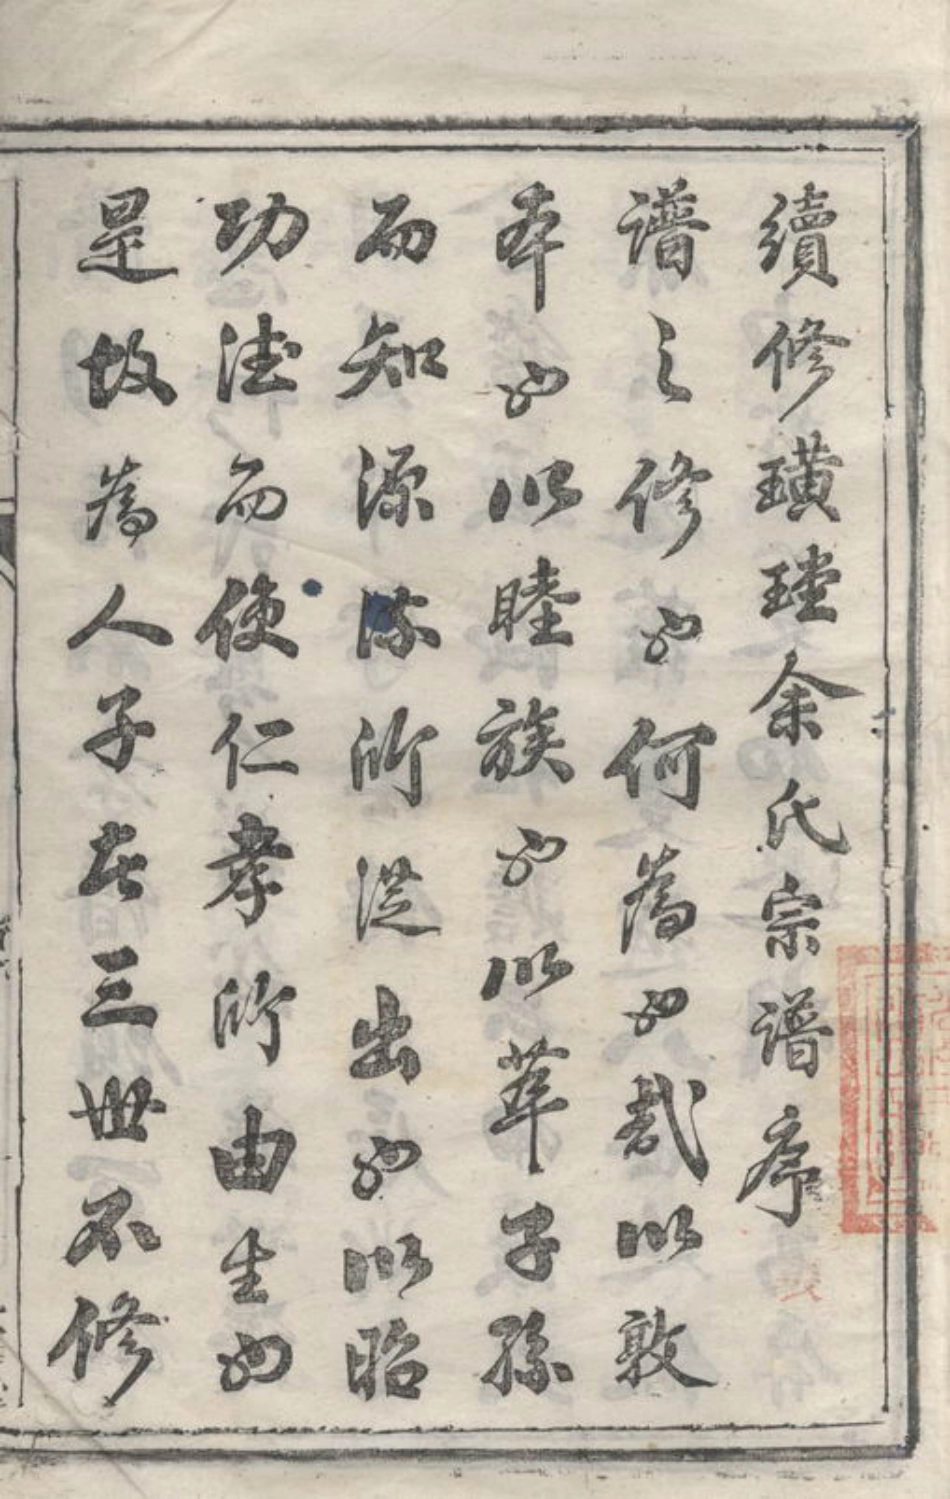 續修璜瑝余氏宗譜序
譜之修也何為也哉以敦
本也以睦族也以萃子孫
而知源流所從出也以昭
功德而使仁孝所由生也
是故為人子者三世不修